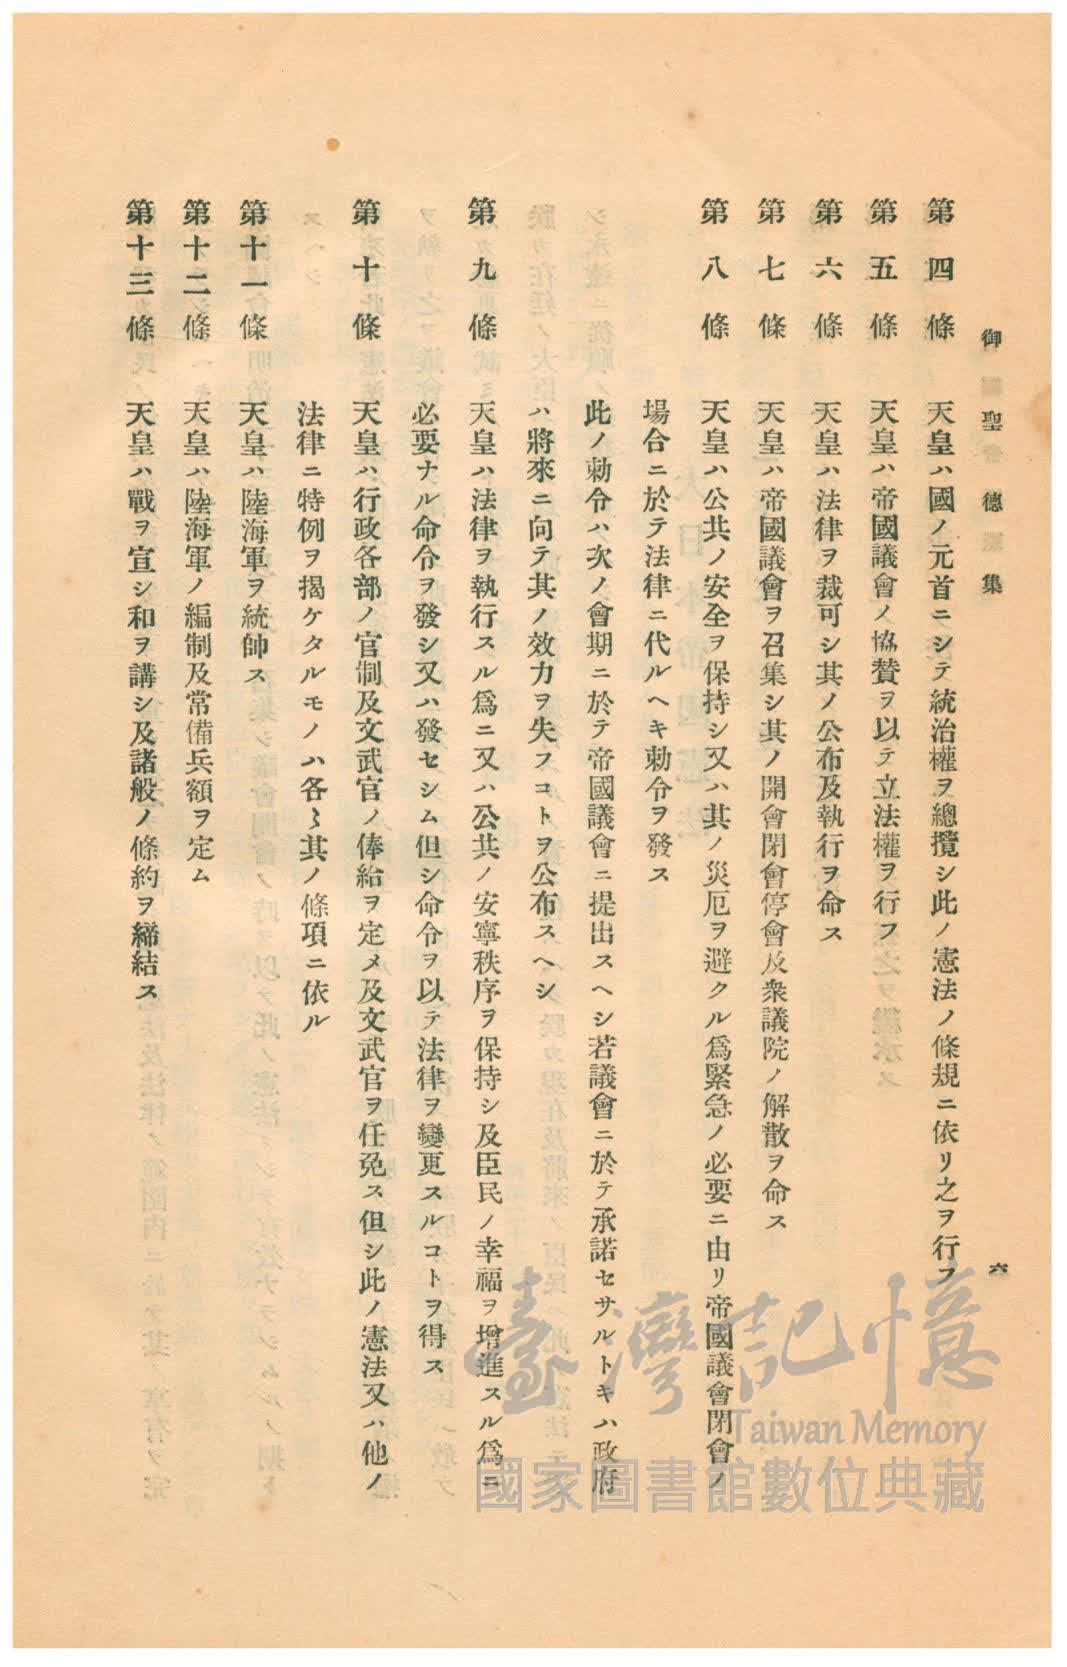 御聖德集
六
第四條 天皇ハ國ノ元首ニシテ統治權ヲ總攬シ此ノ憲法ノ條規ニ依リ之ヲ行フ
第五條 天皇ハ帝國議會ノ協贊ヲ以テ立法權ヲ行フ
第六條 天皇ハ法律ヲ裁可シ其ノ公布及執行ヲ命ス
第七條 天皇ハ帝國議會ヲ召集シ其ノ開會閉會停會及衆議院ノ解散ヲ命ス
第八條 天皇ハ公共ノ安全ヲ保持シ又ハ其ノ災厄ヲ避クル爲緊急ノ必要ニ由リ帝國議會閉會ノ
場合ニ於テ法律ニ代ルヘキ勅令ヲ發ス
此ノ勅令ハ次ノ會期ニ於テ帝國議會ニ提出スヘシ若議會ニ於テ承諾セサルトキハ政府
ハ將來ニ向テ其ノ效力ヲ失フコトヲ公布スヘシ
第九條 天皇ハ法律ヲ執行スル爲ニ又ハ公共ノ安寧秩序ヲ保持シ及臣民ノ幸福ヲ增進スル爲ニ
必要ナル命令ヲ發シ又ハ發セシム但シ命令ヲ以テ法律ヲ變更スルコトヲ得ス
第十條 天皇ハ行政各部ノ官制及文武官ノ俸給ヲ定メ及文武官ヲ任免ス但シ此ノ憲法又ハ他ノ
法律ニ特例ヲ揭ケタルモノハ各〻其ノ條項ニ依ル
第十一條 天皇ハ陸海軍ヲ統帥ス
第十二條 天皇ハ陸海軍ノ編制及常備兵額ヲ定ム
第十三條 天皇ハ戰ヲ宣シ和ヲ講シ及諸般ノ條約ヲ締結ス
臺灣記憶
Taiwan Memory
國家圖書館數位典藏